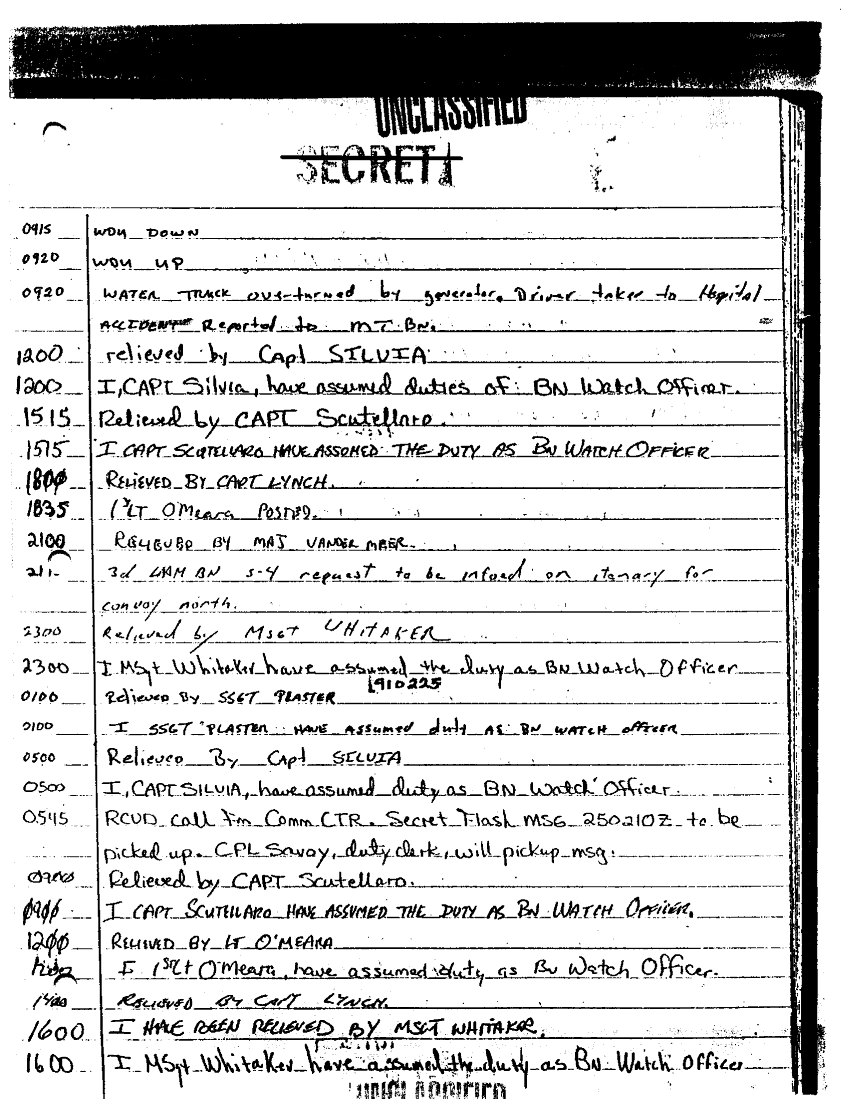 UNCLASSIFIED
SECRET
0915 WOU DOWN
0920 WOU UP
0920 WATER TRUCK over-turned by generator. Driver taken to Hspital
ACCIDENT Reported to MT BN.
1200 relieved by Capt SILVIA
1200 I, CAPT Silvia, have assumed duties of BN Watch Officer.
1515 Relieved by CAPT Scutellaro.
1515 I CAPT SCUTELLARO HAVE ASSUMED THE DUTY AS BN WATCH OFFICER
1800 RELIEVED BY CAPT LYNCH.
1835 1st LT O'Meara POSTED.
2100 RELIEVED BY MAJ VANDER MEER.
3d LAAM BN S-4 request to be infoed on itenary for
convoy north.
2300 Relieved by MSGT WHITAKER
2300 I MSgt Whitaker have assumed the duty as BN Watch Officer
910225
0100 Relieved By SSGT PLASTER
0100 I SSGT PLASTER HAVE ASSUMED duty AS BN WATCH officer
0500 Relieved By Capt SILVIA
0500 I, CAPT SILVIA, have assumed duty as BN Watch Officer.
0545 RCVD call fm Comm CTR. Secret Flash MSG 250210Z to be
picked up. CPL Savoy, duty clerk, will pickup msg.
0900 Relieved by CAPT Scutellaro.
0900 I CAPT SCUTELLARO HAVE ASSUMED THE DUTY AS BN WATCH OFFICER.
1200 RELIEVED BY LT O'MEARA
I 1st Lt O'Meara, have assumed duty as Bn Watch Officer.
1400 RELIEVED BY CAPT LYNCH.
1600 I HAVE BEEN RELIEVED BY MSGT WHITAKER.
1600 I MSgt Whitaker have assumed the duty as BN Watch Officer
UNCLASSIFIED